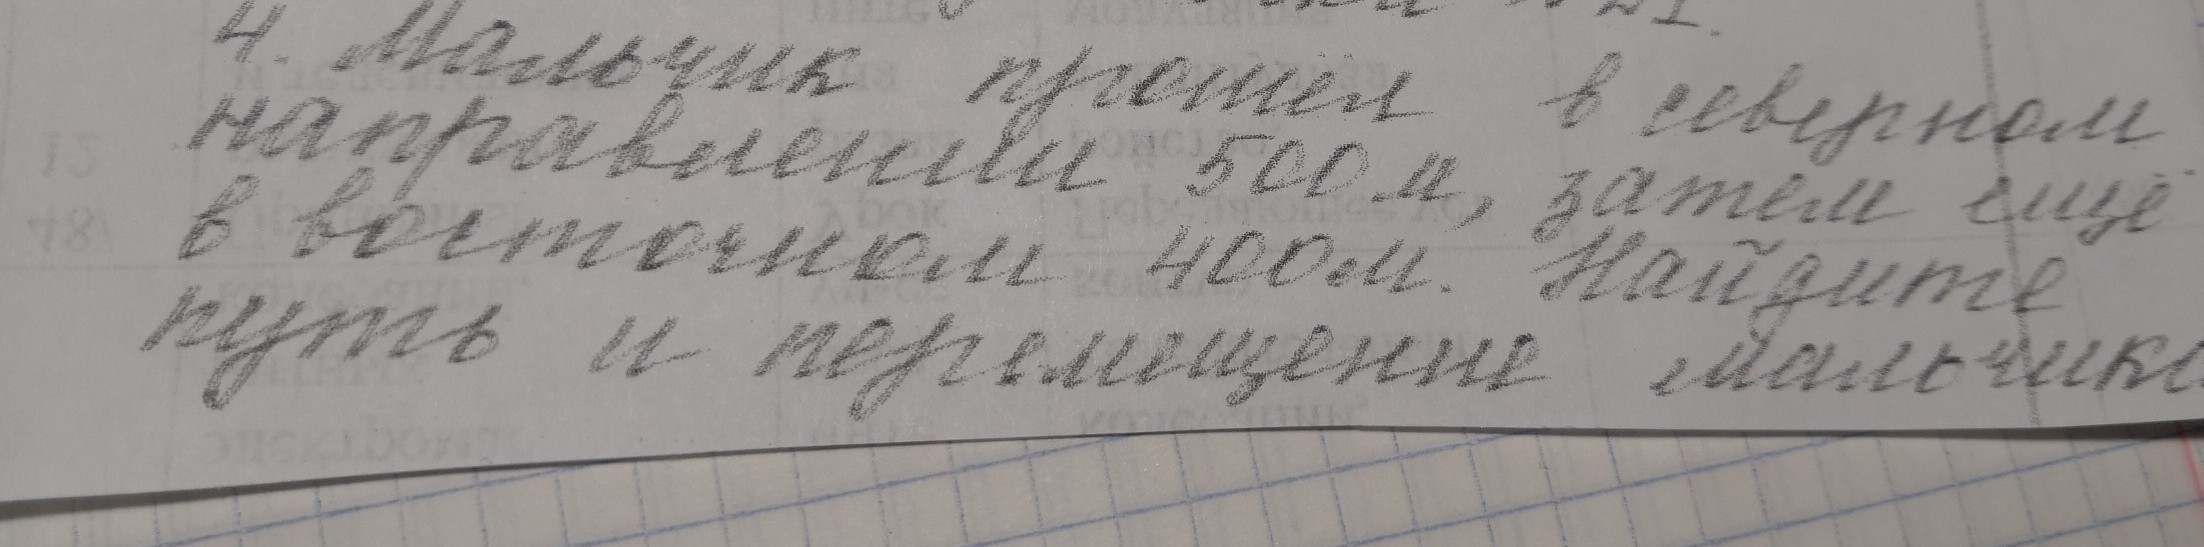 4. Мальчик прошёл в северном
направлении 500 м, затем ещё
в восточном 400 м. Найдите
путь и перемещение мальчика